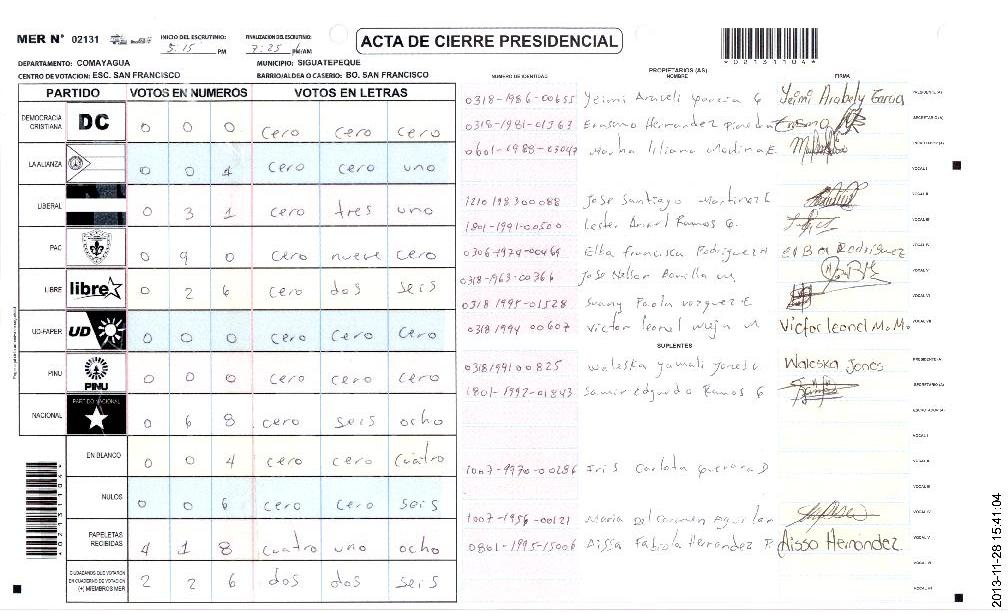 MER N° 02131 INICIO DEL ESCRUTINIO: 5:15 PM FINALIZACION DEL ESCRUTINIO: 7:25 PM/AM
ACTA DE CIERRE PRESIDENCIAL
*02131104*
DEPARTAMENTO: COMAYAGUA MUNICIPIO: SIGUATEPEQUE
CENTRO DE VOTACION: ESC. SAN FRANCISCO BARRIO/ALDEA O CASERIO: BO. SAN FRANCISCO
PARTIDO VOTOS EN NUMEROS VOTOS EN LETRAS
DEMOCRACIA CRISTIANA DC 0 0 0 cero cero cero
LA ALIANZA 0 0 1 cero cero uno
LIBERAL 0 3 1 cero tres uno
PAC 0 9 0 cero nueve cero
LIBRE libre 0 2 6 cero dos seis
UD-FAPER UD 0 0 0 cero cero cero
PINU PINU 0 0 0 cero cero cero
NACIONAL PARTIDO NACIONAL 0 6 8 cero seis ocho
EN BLANCO 0 0 4 cero cero cuatro
NULOS 0 0 6 cero cero seis
PAPELETAS RECIBIDAS 4 1 8 cuatro uno ocho
CIUDADANOS QUE VOTARON EN CUADERNO DE VOTACION (+) MIEMBROS MER 2 2 6 dos dos seis
*02131104*
PROPIETARIOS (AS)
NUMERO DE IDENTIDAD NOMBRE FIRMA
0318-1986-00655 Yeimi Araveli Garcia G Yeimi Arabely Garcia PRESIDENTE (A)
0318-1981-01563 Erasmo Hernandez Erasmo SECRETARIO (A)
0601-1988-03047 Martha Liliana Medina E.
VOCAL I
1210 1983 00088 Jose Santiago Martinez E VOCAL II
1801-1991-00500 Lester Ramos G. VOCAL III
0306-1974-00469 Elba francisca Rodriguez H Elba Rodriguez VOCAL IV
0318-1963-00366 Jose Nelson Bonilla M VOCAL V
0318 1995-01528 Suany Paola vazquez E VOCAL VI
0318 1994 00607 Victor leonel mejia M Victor leonel M.M. VOCAL VII
SUPLENTES
0318 1991 00825 Waleska yamali Jones Waleska Jones PRESIDENTE (A)
1801-1992-01843 Samir edgardo Ramos G SECRETARIO (A)
ESCRUTADOR (A)
VOCAL I
1007-1970-00286 Iris Carlota Guevara D VOCAL II
VOCAL III
1007-1956-00121 Maria Del Carmen Aguilar VOCAL IV
0801-1995-15006 Aissa Fabiola Hernandez P. Aissa Hernandez. VOCAL V
VOCAL VI
VOCAL VII
2013-11-28 15:41:04